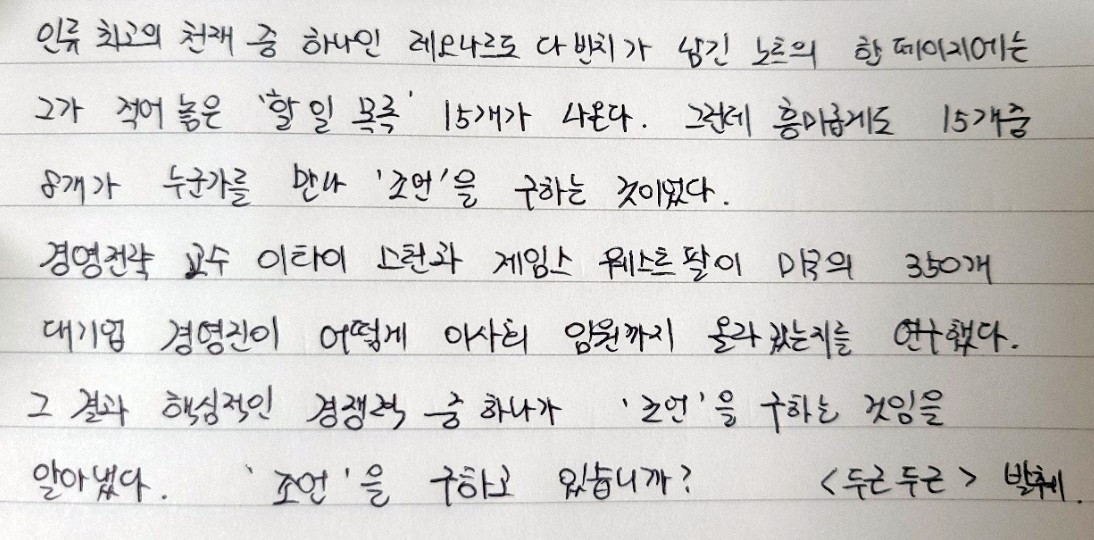 인류 최고의 천재 중 하나인 레오나르도 다빈치가 남긴 노트의 한 페이지에는
그가 적어 놓은 '할 일 목록' 15개가 나온다. 그런데 흥미롭게도 15개중
8개가 누군가를 만나 '조언'을 구하는 것이었다.
경영전략 교수 이타이 스턴과 제임스 웨스트팔이 미국의 350개
대기업 경영진이 어떻게 이사회 임원까지 올라갔는지를 연구했다.
그 결과 핵심적인 경쟁력 중 하나가 '조언'을 구하는 것임을
알아냈다. '조언'을 구하고 있습니까? <두근두근> 발췌.